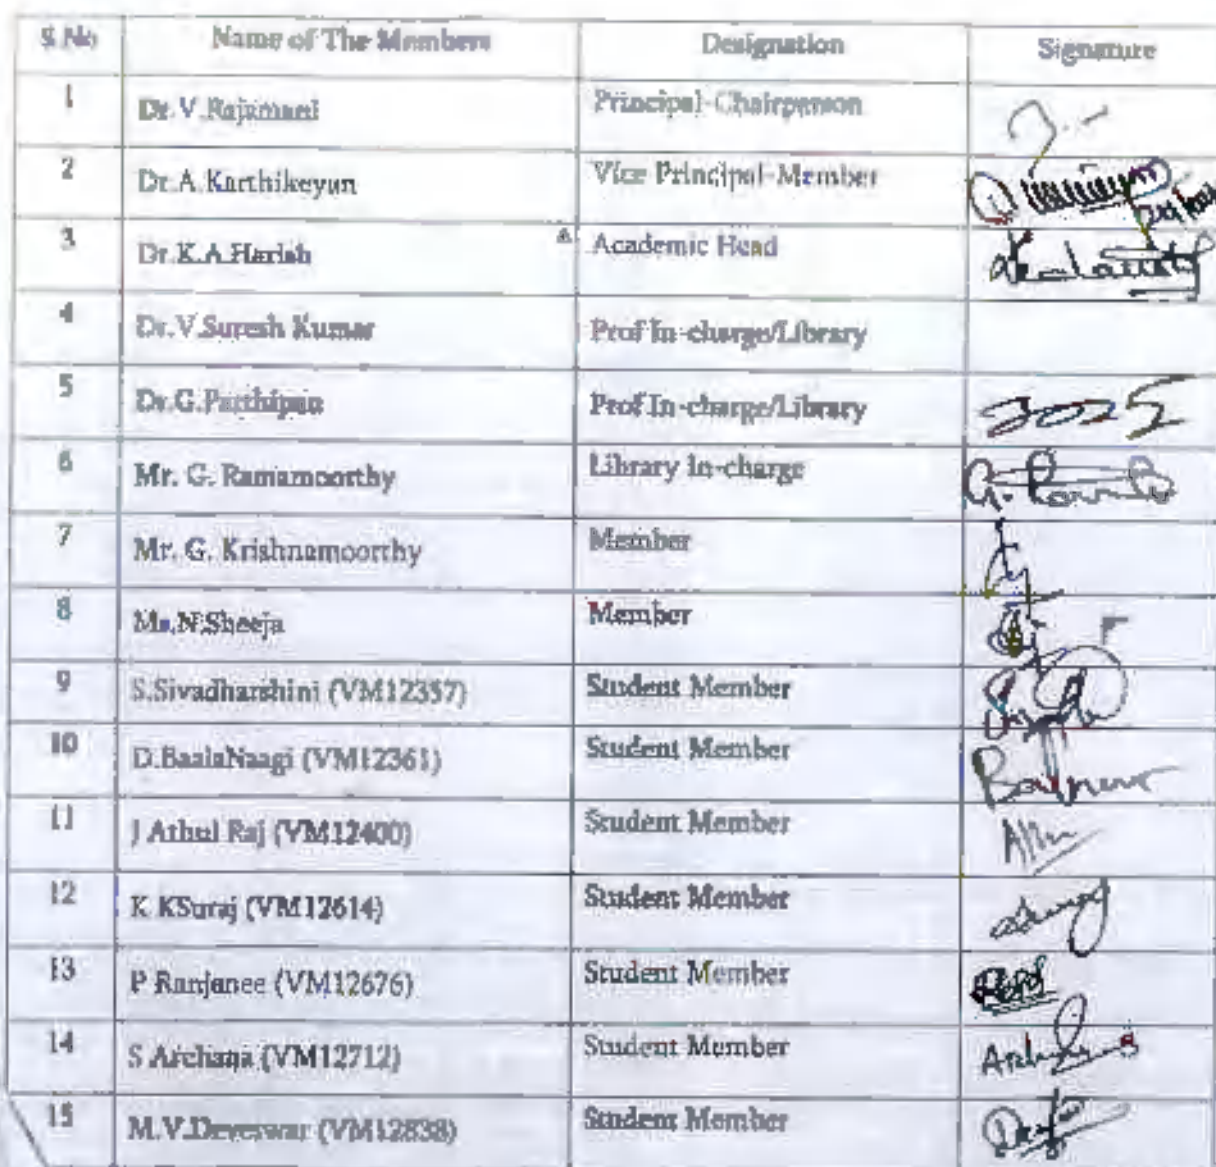 S.No Name of The Members Designation Signature
1 Dr.V.Rajamani Principal-Chairperson
2 Dr.A.Karthikeyan Vice Principal-Member
3 Dr.K.A.Harish Academic Head
4 Dr.V.Suresh Kumar Prof In-charge/Library
5 Dr.G.Parthipan Prof In-charge/Library
6 Mr. G. Ramamoorthy Library In-charge
7 Mr. G. Krishnamoorthy Member
8 Ms.N.Sheeja Member
9 S.Sivadharshini (VM12357) Student Member
10 D.BaalaNaagi (VM12361) Student Member
11 J Athul Raj (VM12400) Student Member
12 K KSuraj (VM12614) Student Member
13 P Ranjanee (VM12676) Student Member
14 S Archana (VM12712) Student Member
15 M.V.Deveswar (VM12838) Student Member